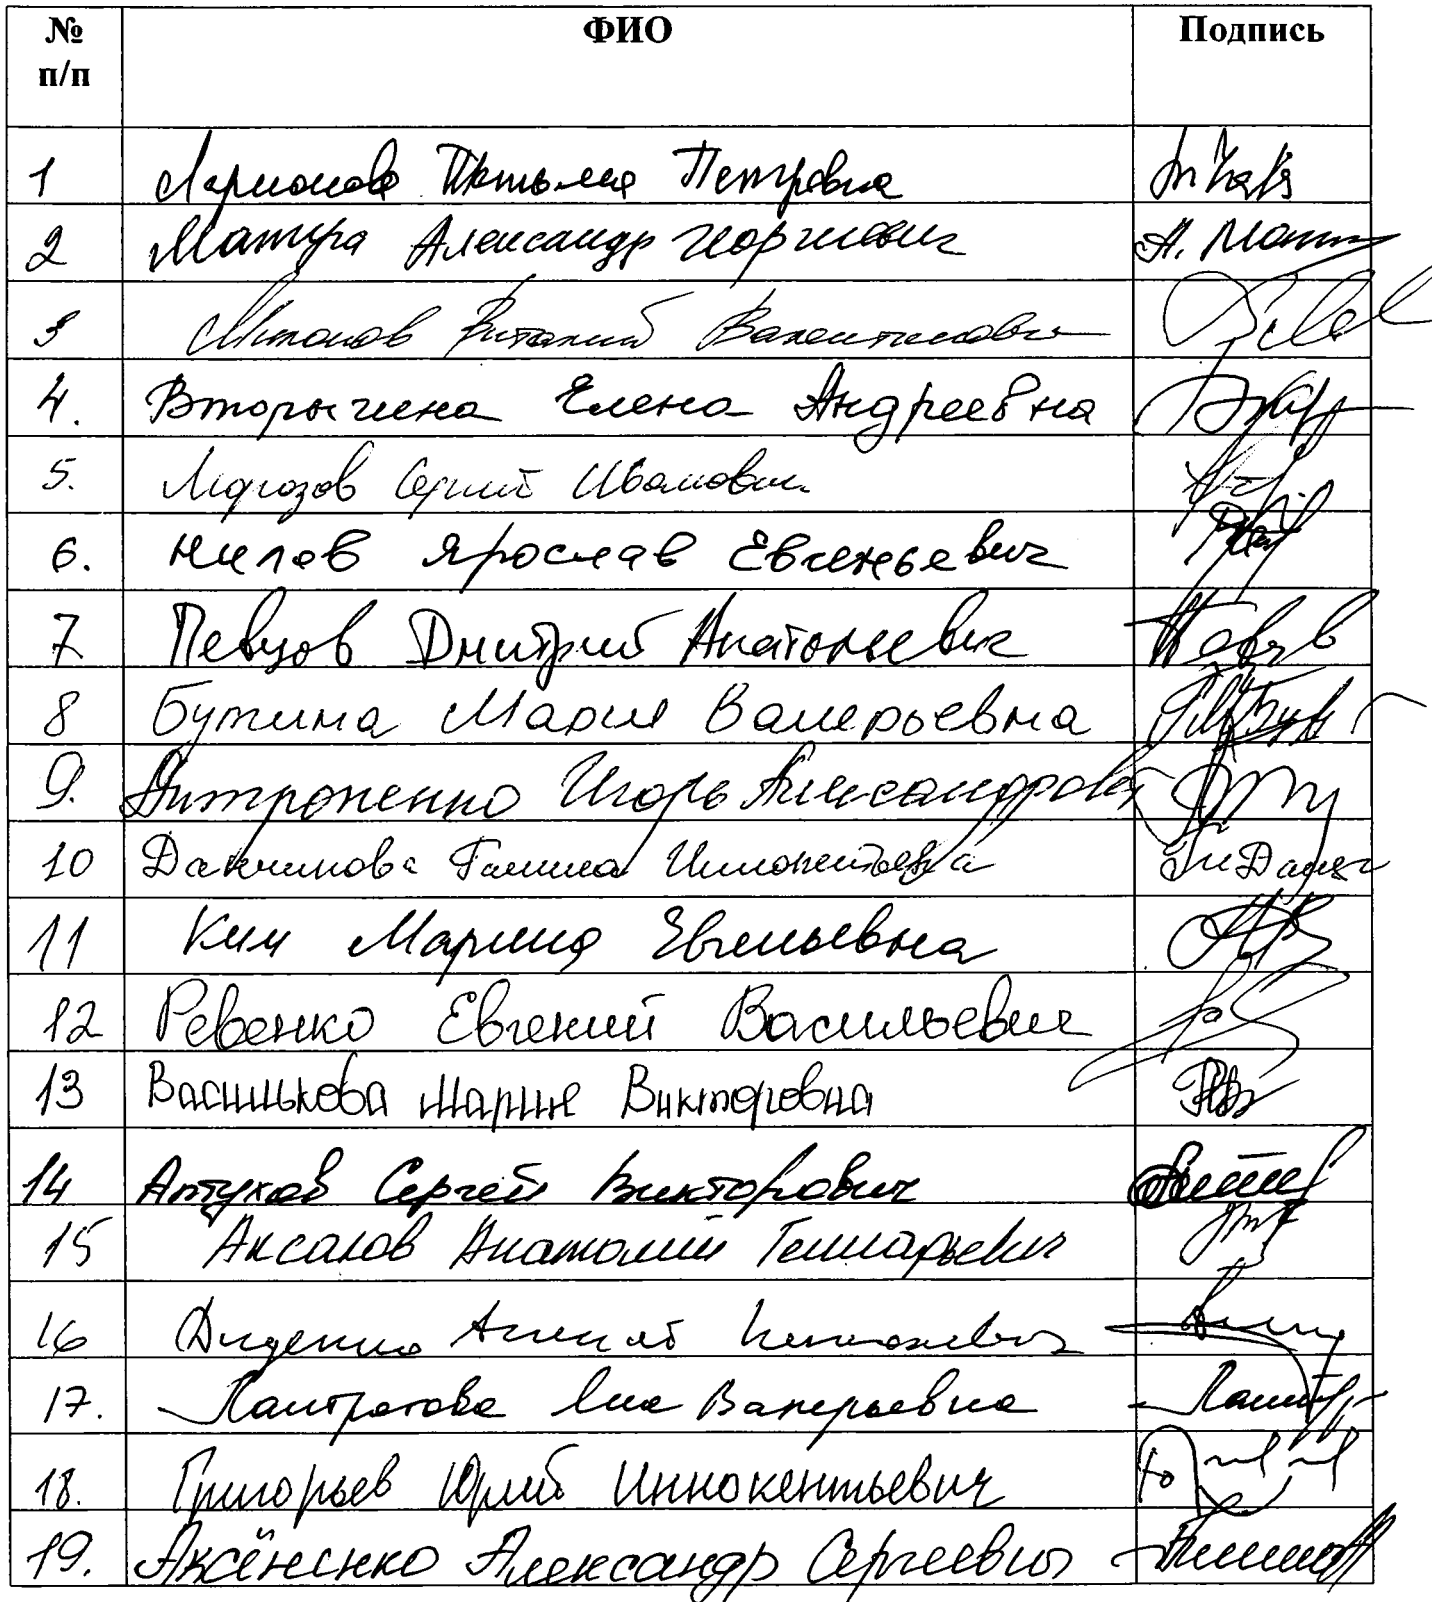 № п/п ФИО Подпись
1 Ларионова Татьяна Петровна
2 Мажуга Александр Георгиевич А. Маж
3 Милонов Виталий Валентинович
4. Вторыгина Елена Андреевна
5. Морозов Сергей Иванович
6. Нилов Ярослав Евгеньевич
7 Певцов Дмитрий Анатольевич Певцов
8 Бутина Мария Валерьевна
9. Антропенко Игорь Александрович
10 Данчикова Галина Иннокентьевна
11 Ким Марина Евгеньевна
12 Ревенко Евгений Васильевич
13 Василькова Мария Викторовна
14 Алтухов Сергей Викторович
15 Аксаков Анатолий Геннадьевич
16 Диденко Алексей Николаевич
17. Лантратова Яна Валерьевна
18. Григорьев Юрий Иннокентьевич
19. Аксёненко Александр Сергеевич